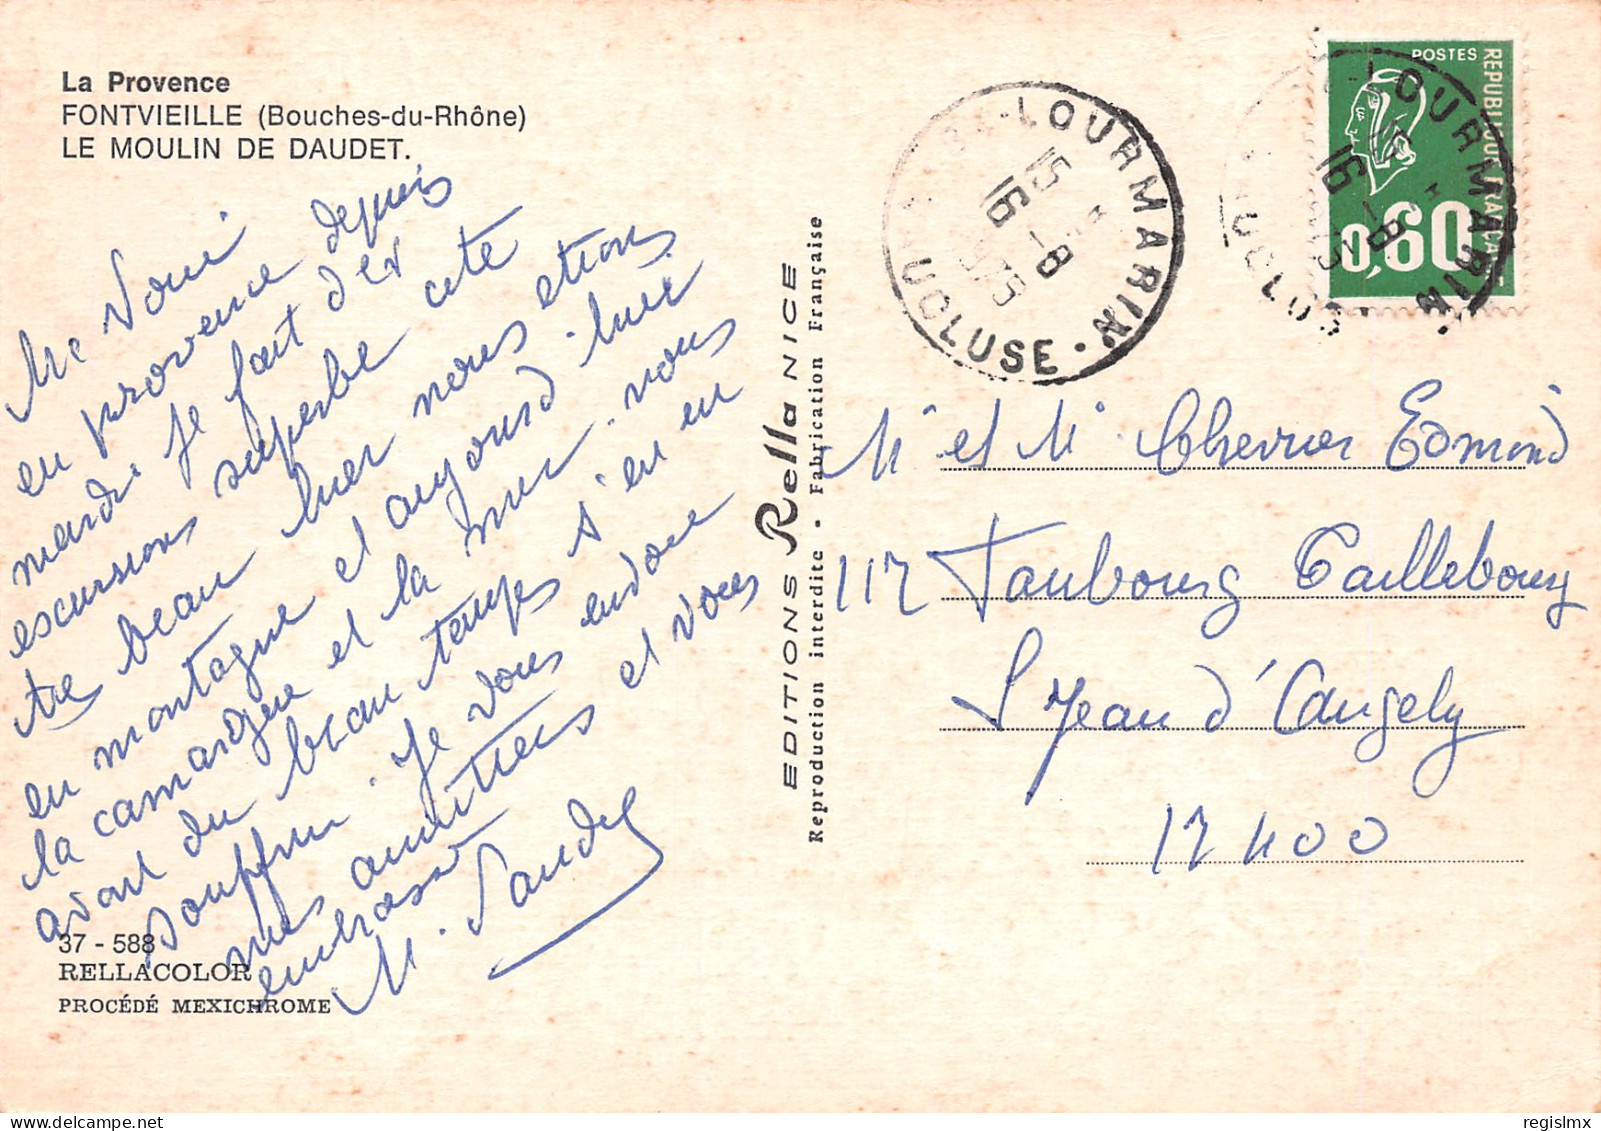 La Provence
FONTVIEILLE (Bouches-du-Rhône)
LE MOULIN DE DAUDET.
Me Voici
en provence depuis
mardi je fait des
escursions superbe cete
tre beau hier nous etions
en montagne et aujourd'hui
la camargue et la mer. vous
avait du beau temps s'en en
souffrir. je vous endore
mes amitties et vous
embrasse
M. Sandre
37 - 588
RELLACOLOR
PROCÉDÉ MEXICHROME
EDITIONS Rella NICE
Reproduction interdite • Fabrication Française
LOURMARIN
15
16 - 8
1975
VAUCLUSE
POSTES
REPUBLIQUE FRANCAISE
0,60
LOURMARIN
16 - 8
VAUCLUSE
Mr et Me Chevrier Edmond
117 Faubourg Taillebourg
St Jean d'Angely
17400
regislmx